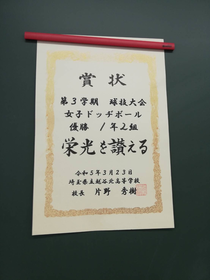 賞状
第3学期 球技大会
女子ドッヂボール
優勝 1年2組
栄光を讃える
令和5年3月23日
埼玉県立越谷北高等学校
校長 片野 秀樹